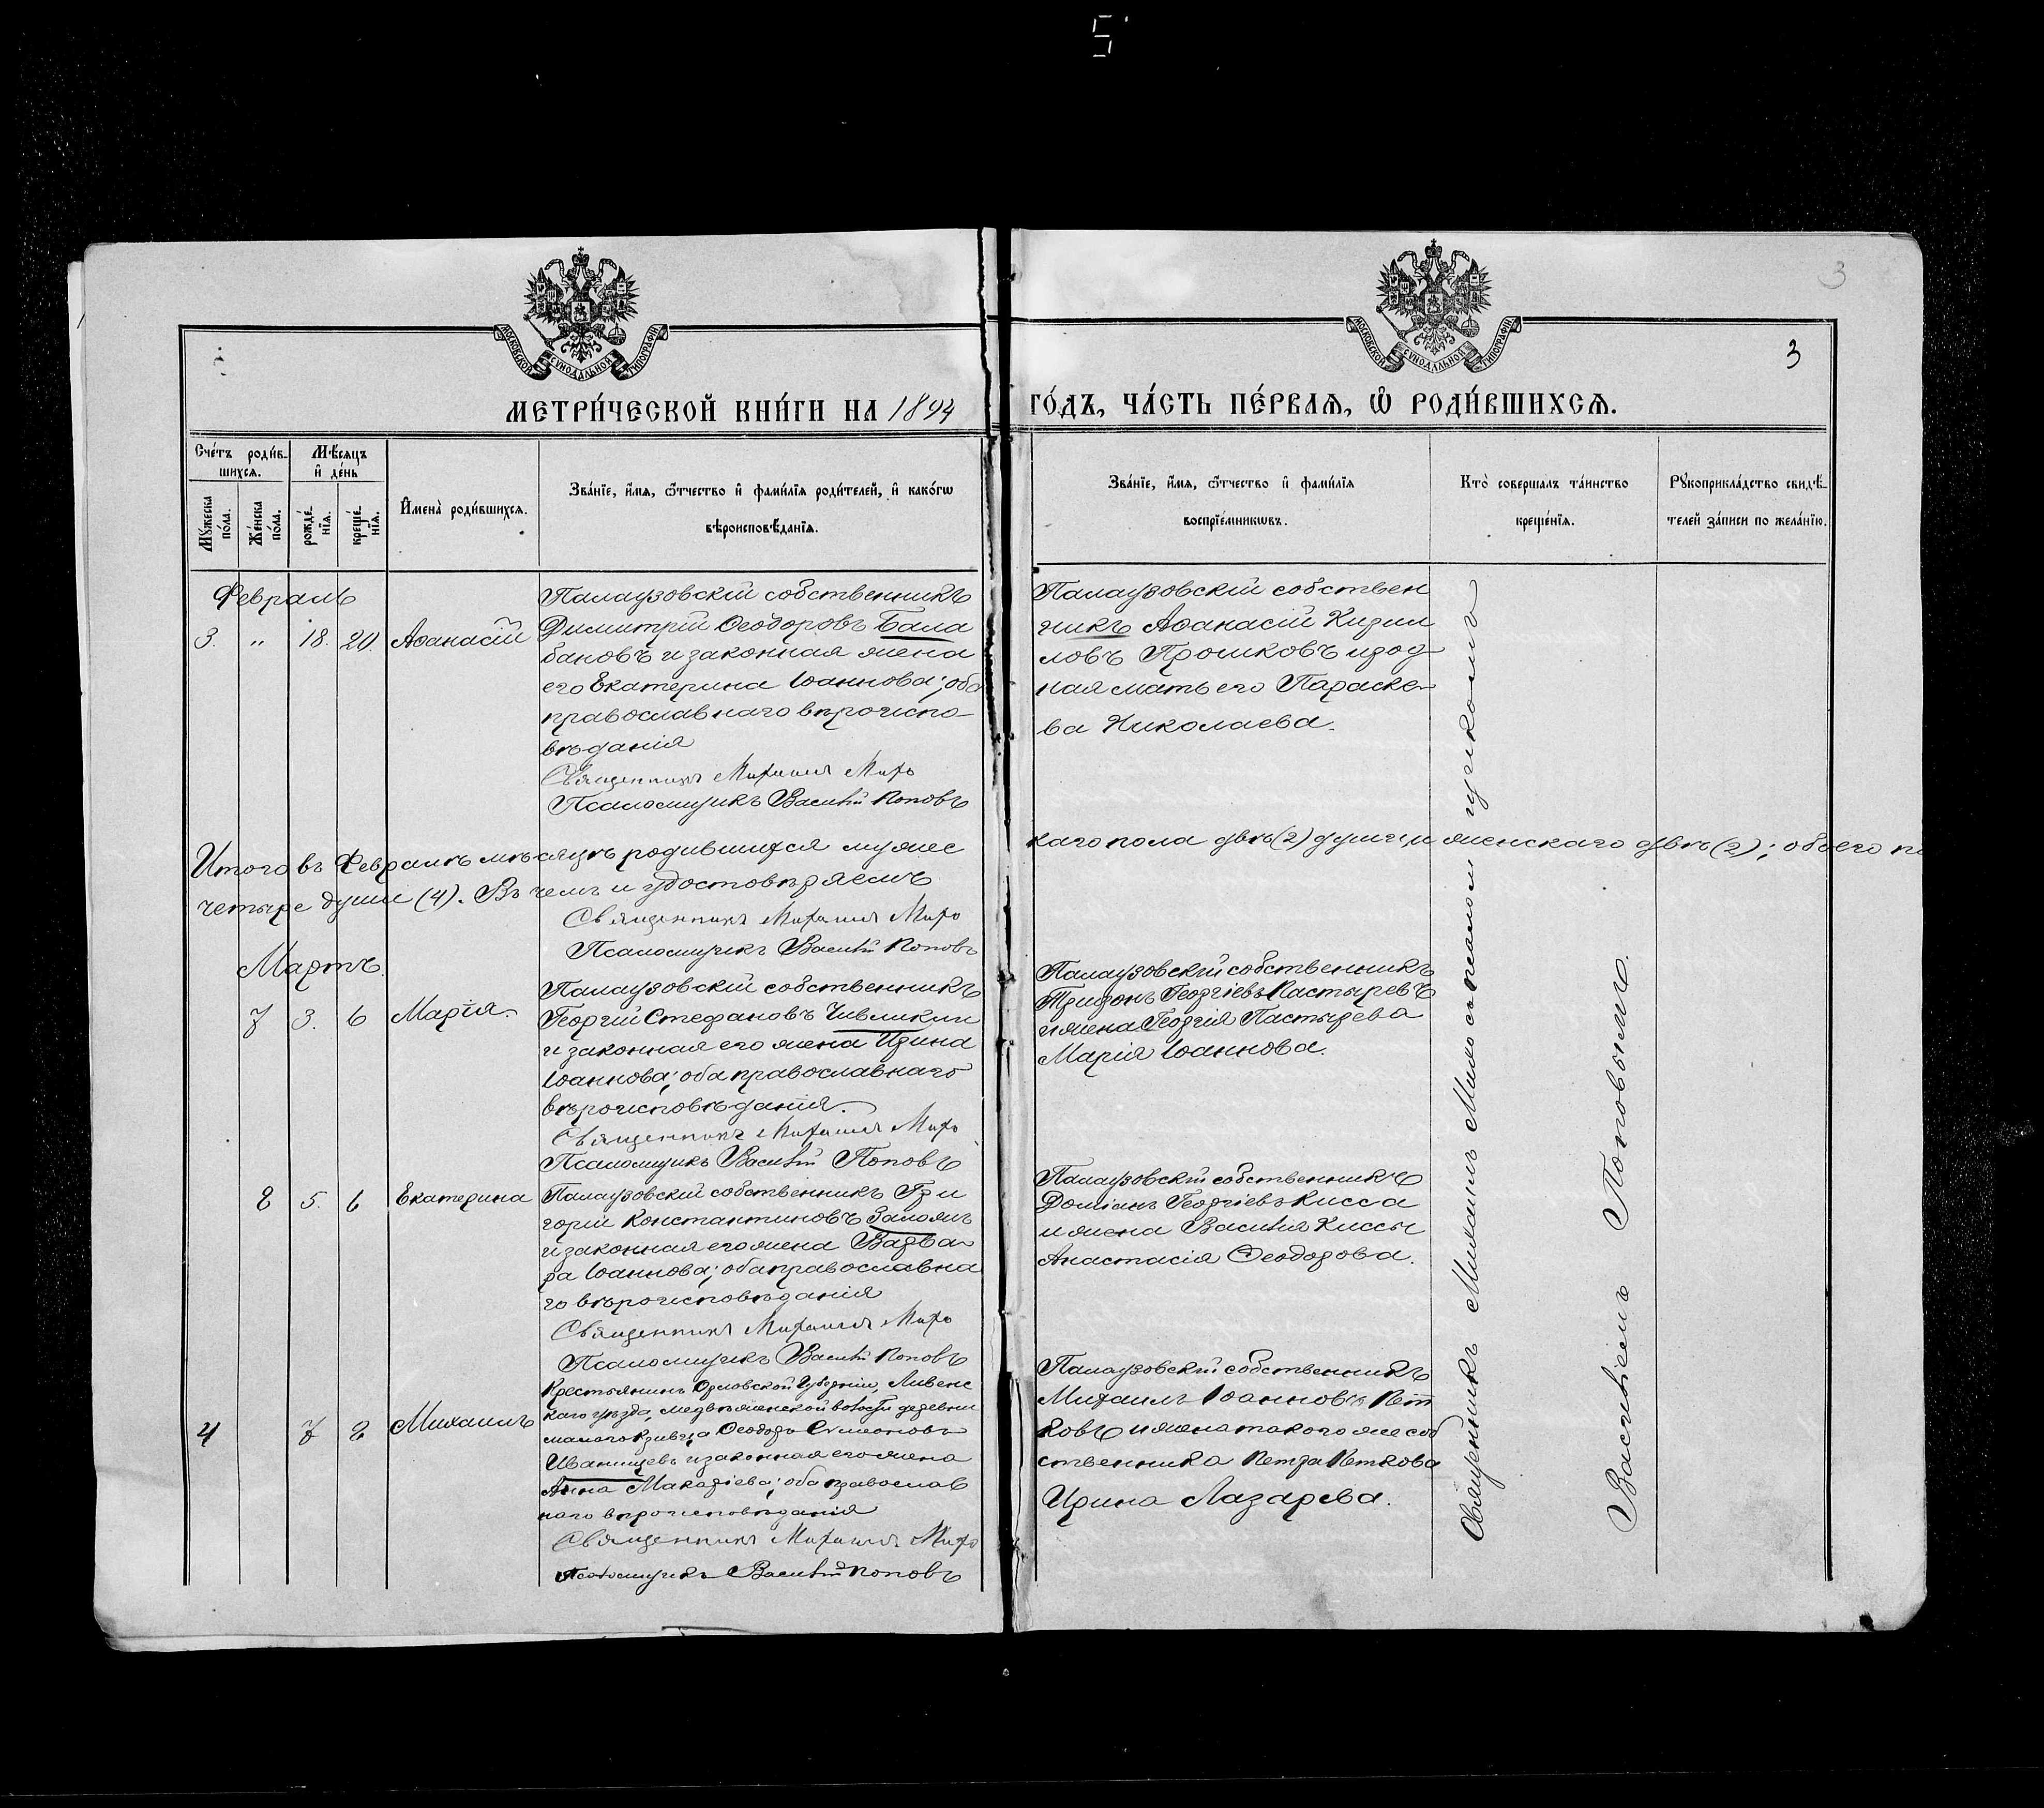 5
3
МОСКОВСКОЙ СѴНОДАЛЬНОЙ ТИПОГРАФІИ
МОСКОВСКОЙ СѴНОДАЛЬНОЙ ТИПОГРАФІИ
3
МЕТРИ́ЧЕСКОЙ КНИ́ГИ НА 1894
ГО́ДЪ, ЧА́СТЬ ПЕ́РВАѦ, Ѽ РОДИ́ВШИХСѦ.
Сче́тъ роди́в-
шихсѧ.
Мꙋ́жеска
по́ла.
Же́нска
по́ла.
Мѣ́сѧцъ
и҆ де́нь
рожде́-
нїѧ.
креще́-
нїѧ.
И҆мена̀ роди́вшихсѧ.
Зва́нїе, и҆́мѧ, ѻ҆́тчество и҆ фами́лїѧ роди́телей, и҆ како́гѡ
вѣроисповѣ́данїѧ.
Зва́нїе, и҆́мѧ, ѻ҆́тчество и҆ фами́лїѧ
воспрїе́мникѡвъ.
Кто̀ соверша́лъ та́инство
креще́нїѧ.
Рꙋкоприкла́дство свидѣ́-
телей за́писи по жела́нїю.
Февраль
3. " 18. 20. Аѳанасій
Палаузовскій собственникъ
Димитрій Ѳеодоровъ Бала
бановъ и законная жена
его Екатерина Іоаннова; оба
православнаго вѣроиспо-
вѣданія
Священникъ Михаилъ
Псаломщикъ Василій Поповъ
Палаузовскій собствен
никъ Аѳанасій Кирил
ловъ Прошковъ и род
ная мать его Параске-
ва Николаева.
Итого въ Февралѣ мѣсяцѣ родившихся мужес
каго пола двѣ (2) души, и женскаго двѣ (2); обоего по
четыре души (4). Въ чемъ и удостовѣряемъ
Священникъ Михаилъ
Псаломщикъ Василій Поповъ
Мартъ.
7 3. 6 Марія.
Палаузовскій собственникъ
Георгій Стефановъ Чивликли
и законная его жена Ирина
Іоаннова; оба православнаго
вѣроисповѣданія.
Священникъ Михаилъ
Псаломщикъ Василій Поповъ
Палаузовскій собственникъ
Трифонъ Георгіевъ Пастыревъ
и жена Георгія Пастырева
Марія Іоаннова.
8 5. 6 Екатерина
Палаузовскій собственникъ Гри
горій Константиновъ
и законная его жена Варва-
ра Іоаннова; оба православна
го вѣроисповѣданія
Священникъ Михаилъ
Псаломщикъ Василій Поповъ
Палаузовскій собственникъ
Доміанъ Георгіевъ Кисса
и жена Василія Киссы
Анастасія Ѳеодорова.
4 7 8 Михаилъ
Крестьянинъ Орловской Губерніи, Ливенс
каго уѣзда, волости деревни
Ѳеодоръ Симеоновъ
Иванищевъ и законная его жена
Анна Макаріева; оба православ
наго вѣроисповѣданія
Священникъ Михаилъ
Псаломщикъ Василій Поповъ
Палаузовскій собственникъ
Михаилъ Іоанновъ Пет
ковъ и жена такого же соб
ственника Петра Петкова
Ирина Лазарева.
Священникъ Михаилъ съ псаломщикомъ
Василіемъ Поповымъ.